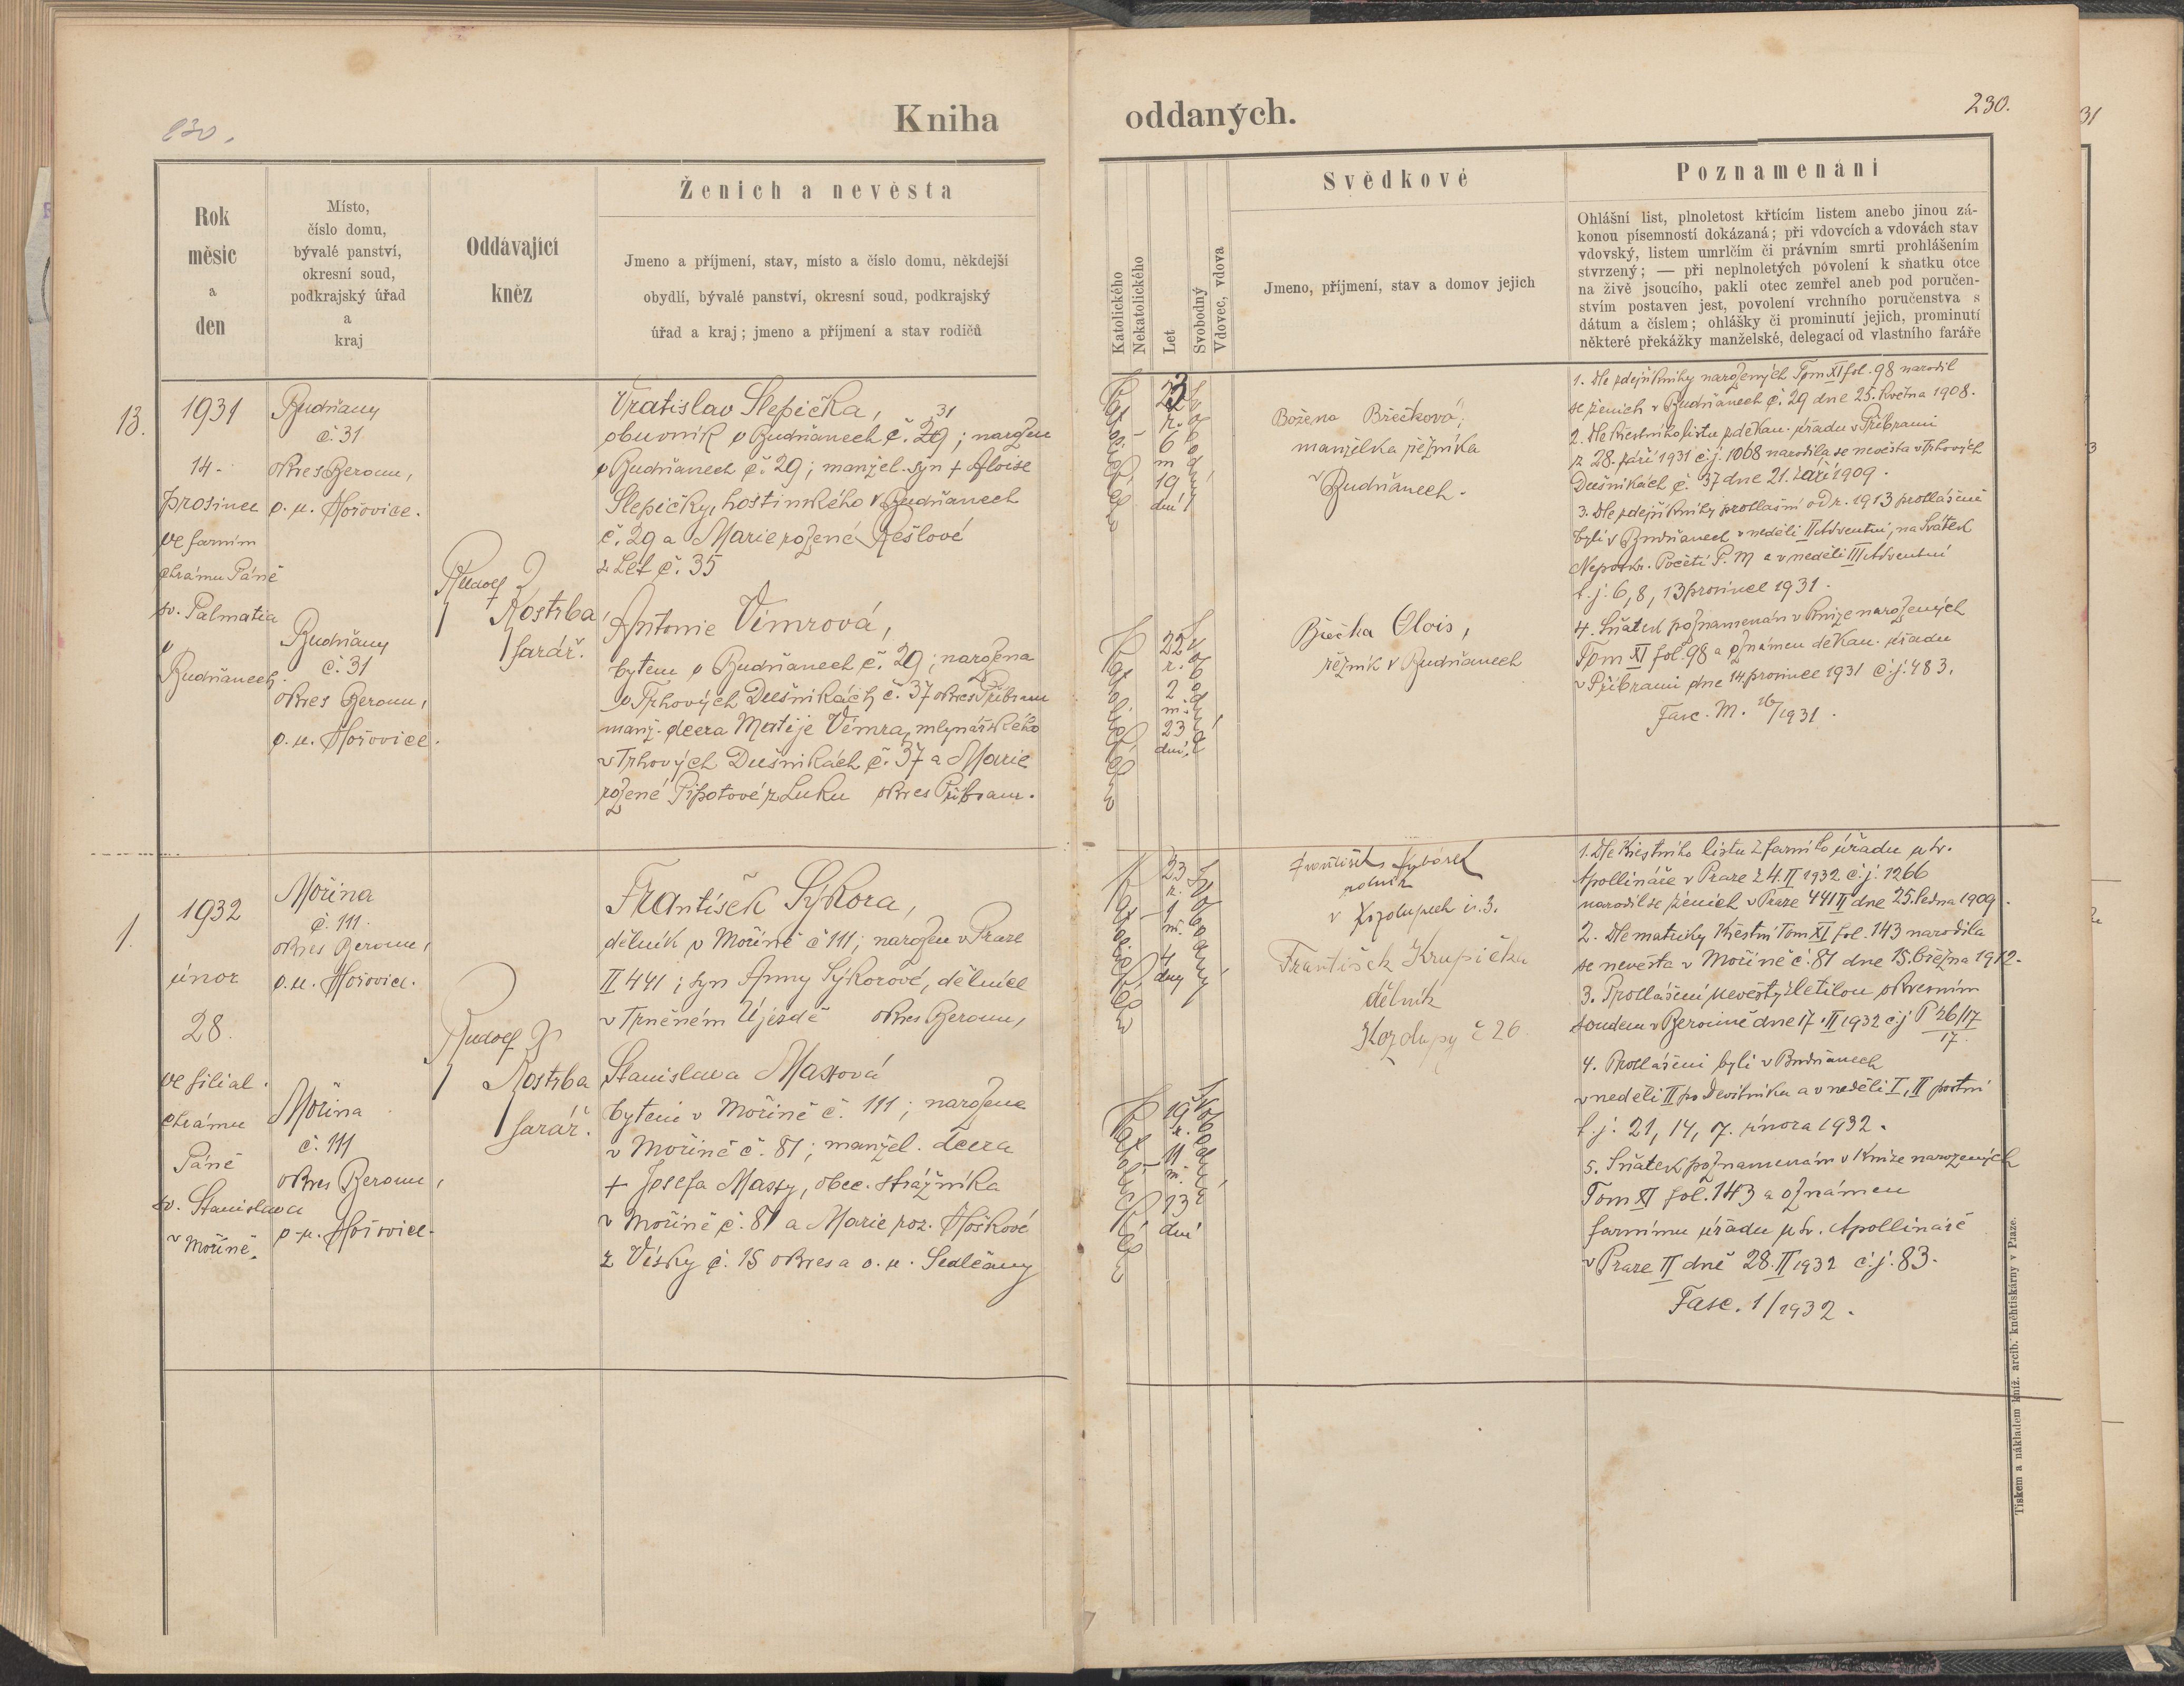 230.
Kniha
oddaných.
230.
Rok
měsíc
a
den
Místo,
číslo domu,
bývalé panství,
okresní soud,
podkrajský úřad
a
kraj
Oddávající
kněz
Ženich a nevěsta
Jmeno a příjmení, stav, místo a číslo domu, někdejší
obydlí, bývalé panství, okresní soud, podkrajský
úřad a kraj; jmeno a příjmení a stav rodičů
Katolického
Nekatolického
Let
Svobodný
Vdovec, vdova
Svědkové
Jmeno, příjmení, stav a domov jejich
Poznamenání
Ohlášní list, plnoletost křtícím listem anebo jinou zá-
konou písemností dokázaná; při vdovcích a vdovách stav
vdovský, listem umrlčím či právním smrti prohlášením
stvrzený; — při neplnoletých povolení k sňatku otce
na živě jsoucího, pakli otec zemřel aneb pod poručen-
stvím postaven jest, povolení vrchního poručenstva s
dátum a číslem; ohlášky či prominutí jejich, prominutí
některé překážky manželské, delegací od vlastního faráře
13.
1931
14.
prosince
ve farním
chrámu Páně
sv. Palmatia
v
Budňanech.
Budňany
č. 31
okres Beroun,
o. u. Hořovice.
Budňany
č. 31
okres Beroun,
o. u. Hořovice.
Rudolf
Kostrba
farář.
Vratislav Slepička,
31
obuvník v Budňanech č. 29; narozen
v Budňanech č. 29; manžel. syn + Aloise
Slepičky, hostinského v Budňanech
č. 29 a Marie rozené Rešlové
z Let č. 35
Antonie Vimrová,
bytem v Budňanech č. 29; narozena
v Trhových Dušníkách č. 37 okres Příbram
manž. dcera Matěje Vimra, mlynářského
v Trhových Dušníkách č. 37 a Marie
rozené Pipotové z Luku okres Příbram.
Katolického
23
r.
6
m.
19
dní
svobodný
Katolického
22
r.
2
m.
23
dní
svobodná
Božena Břečková,
manželka řezníka
v Budňanech.
Břečka Alois,
řezník v Budňanech
1. Dle zdejší knihy narozených Tom XI fol. 98 narodil
se ženich v Budňanech č. 29 dne 25. května 1908.
2. Dle křestního listu z děkan. úřadu v Příbrami
z 28. září 1931 č. j. 1068 narodila se nevěsta v Trhových
Dušníkách č. 37 dne 21. září 1909.
3. Dle zdejší knihy prohlášní od r. 1913 prohlášeni
byli v Budňanech v neděli II Adventní, na Svátek
Neposkv. Početí P. M. a v neděli III Adventní
t. j. 6, 8, 13 prosince 1931.
4. Sňatek poznamenán v knize narozených
Tom XI fol. 98 a oznámen děkan. úřadu
v Příbrami dne 14 prosince 1931 č. j. 483.
Fasc. M. 16/1931.
1.
1932
únor
28.
ve filial.
chrámu
Páně
sv. Stanislava
v Mořině.
Mořina
č. 111.
okres Beroun,
o. u. Hořovice.
Mořina
č. 111
okres Beroun,
o. u. Hořovice.
Rudolf
Kostrba
farář.
František Sýkora,
dělník v Mořině č 111; narozen v Praze
II 441; syn Anny Sýkorové, dělnice
v Trněném Újezdě okres Beroun,
Stanislava Maxová
bytem v Mořině č. 111; narozena
v Mořině č. 81; manžel. dcera
+ Josefa Maxy, obec. strážníka
v Mořině č. 81 a Marie roz. Hoškové
z Vísky č. 15 okres a o. u. Sedlčany
Katolického
23
r.
1
m.
4
dny
svobodný
Katolického
19
r.
11
m.
13
dní
svobodná
František
rolník
v Kozolupech č. 3.
František Krupička
dělník
Kozolupy č 26
1. Dle křestního listu z farního úřadu u sv.
Apollináře v Praze z 4. II 1932 č. j. 1266
narodil se ženich v Praze 441 II dne 25. ledna 1909.
2. Dle matriky křestní Tom XI fol. 143 narodila
se nevěsta v Mořině č. 81 dne 15. března 1912.
3. Prohlášení nevěsty zletilou okresním
soudem v Berouně dne 17. II 1932 č. j P 26/17
17.
4. Prohlášeni byli v Budňanech
v neděli II po Devítníku a v neděli I, II postní
t. j. 21, 14, 7. února 1932.
5. Sňatek poznamenán v knize narozených
Tom XI fol. 143 a oznámen
farnímu úřadu u sv. Apollináře
v Praze II dne 28. II 1932 č. j. 83.
Fasc. 1/1932.
Tiskem a nákladem kníž. arcib. kněhtiskárny v Praze.
31